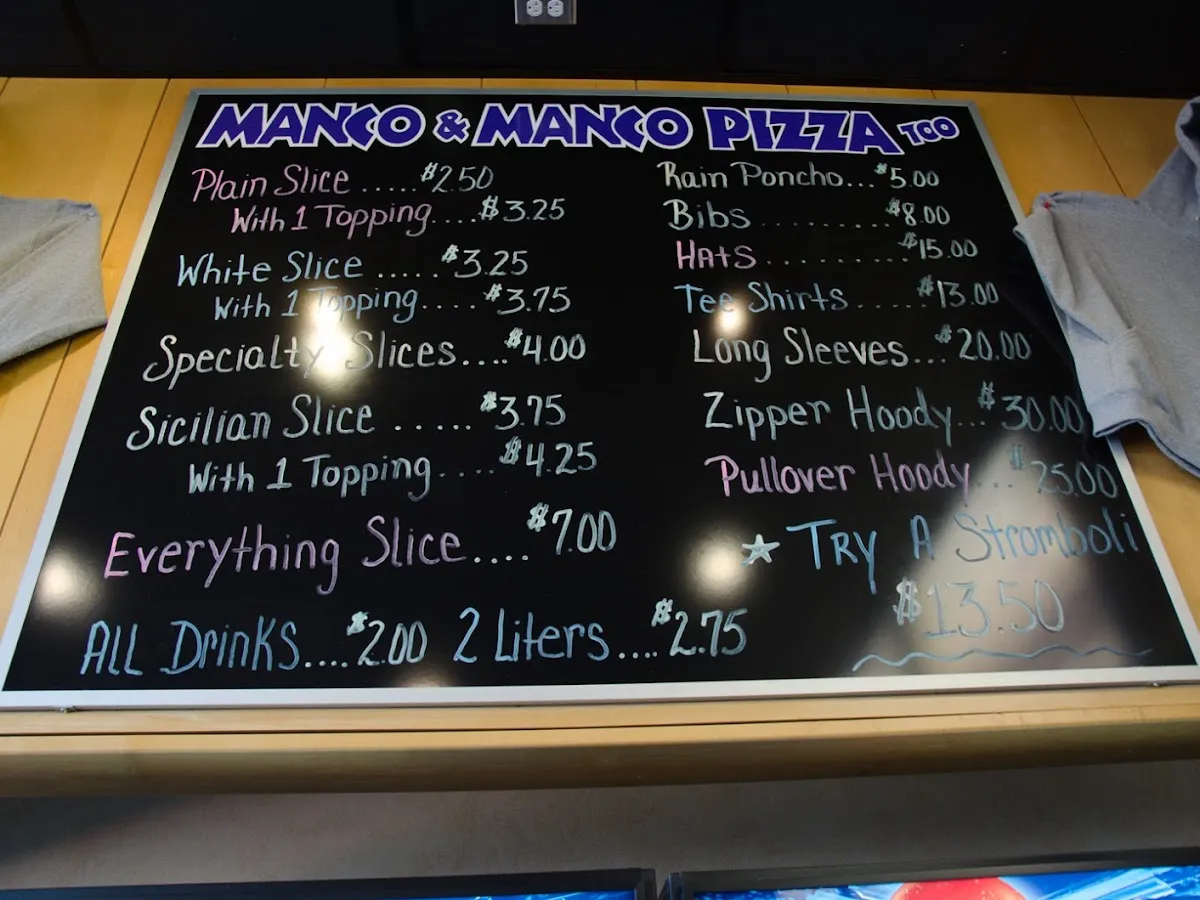 MANCO & MANCO PIZZA TOO
Plain Slice ..... $2.50
With 1 Topping.... $3.25
White Slice ..... $3.25
With 1 Topping..... $3.75
Specialty Slices.... $4.00
Sicilian Slice ...... $3.75
With 1 Topping.... $4.25
Everything Slice.... $7.00
ALL Drinks.... $2.00 2 Liters.... $2.75
Rain Poncho... $5.00
Bibs ......... $8.00
Hats ......... $15.00
Tee Shirts ..... $13.00
Long Sleeves... $20.00
Zipper Hoody... $30.00
Pullover Hoody... $25.00
☆ Try A Stromboli
$13.50